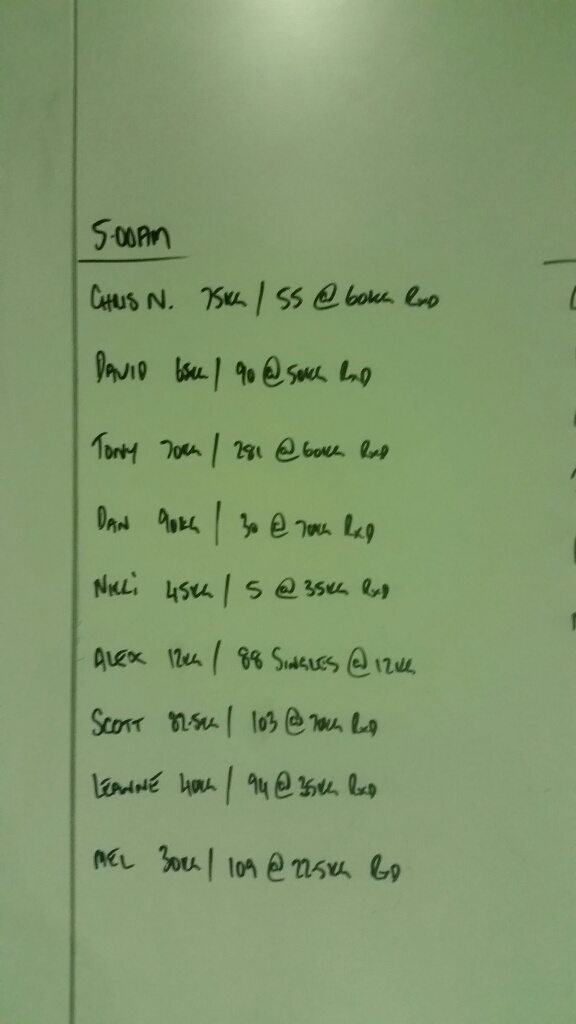 5:00AM
CHRIS N. 75KG / 55 @ 60KG RXD
DAVID 65KG / 90 @ 50KG RXD
TONY 70KG / 281 @ 60KG RXD
DAN 90KG / 30 @ 70KG RXD
NIKKI 45KG / 5 @ 35KG RXD
ALEX 12KG / 88 SINGLES @ 12KG
SCOTT 82.5KG / 103 @ 70KG RXD
LEANNE 40KG / 94 @ 35KG RXD
MEL 30KG / 109 @ 22.5KG RXD